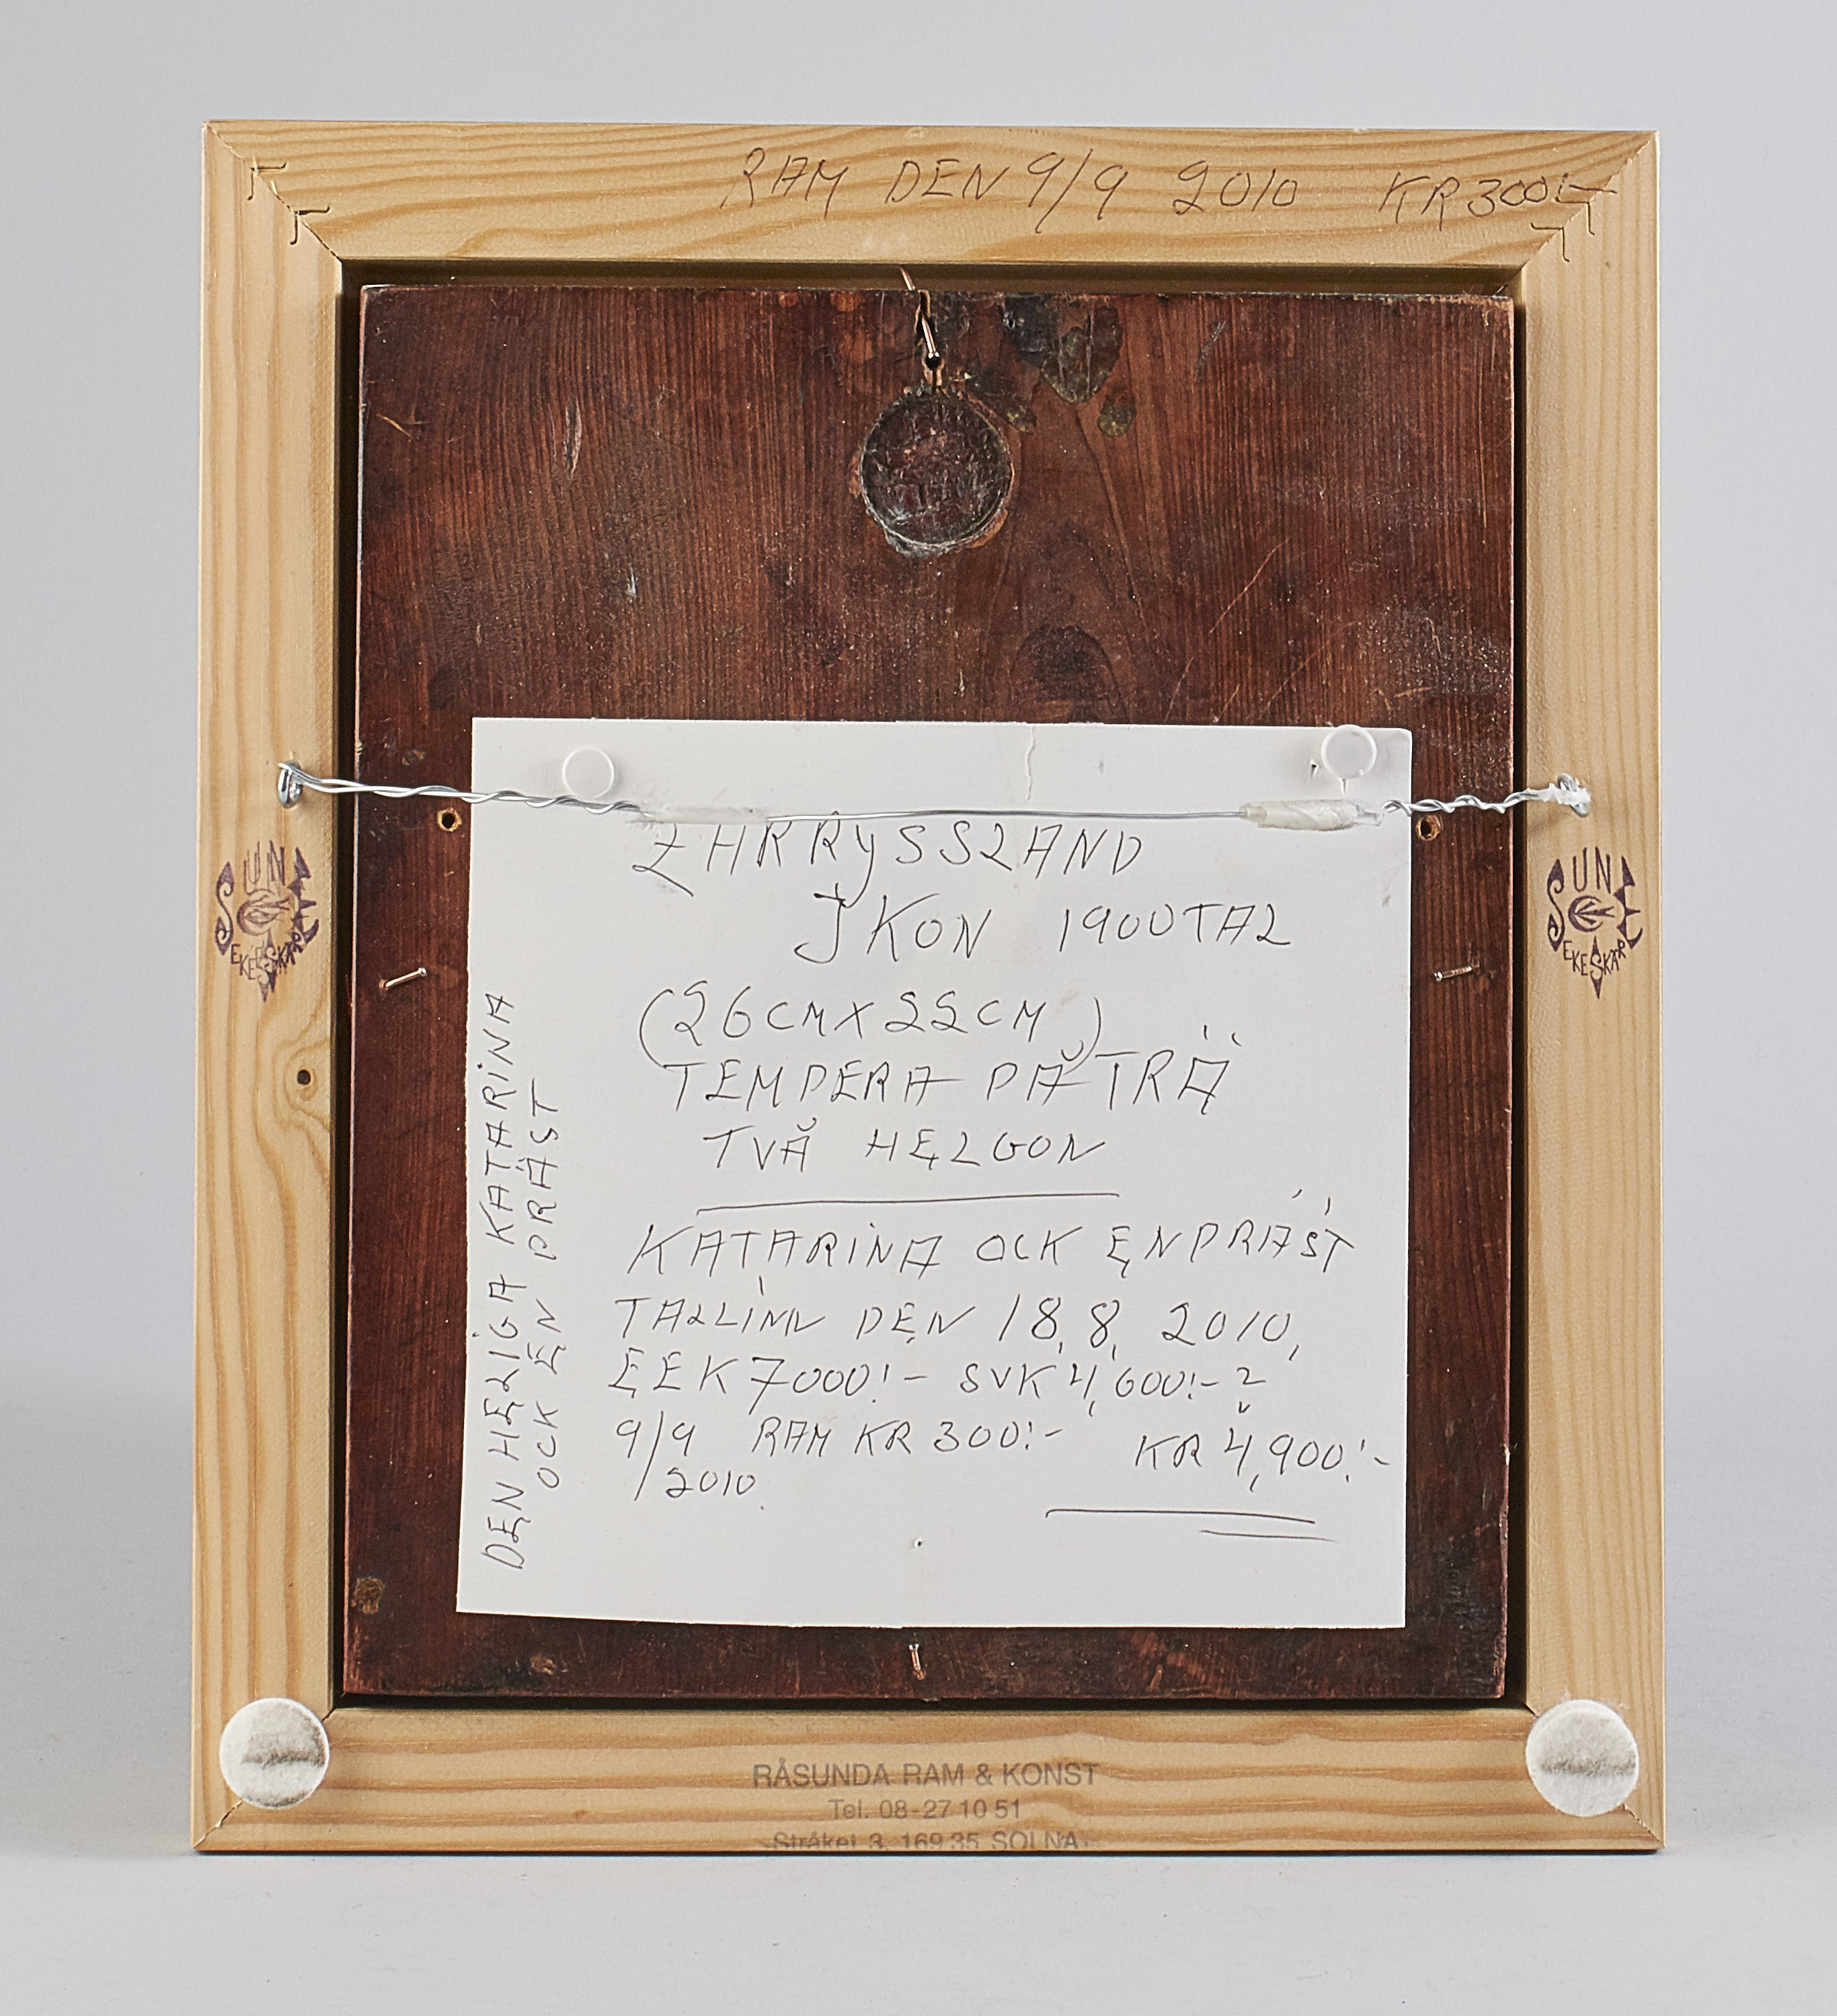 RAM DEN 9/9 2010 KR 300:-
ZARRYSSLAND
IKON 1900TAL
(26CMX22CM)
TEMPERA PÅ TRÄ
TVÅ HELGON
KATARINA OCK EN PRÄST
TALLINN DEN 18,8, 2010,
EEK 7000:- SVK 4,600:-
9/9 RAM KR 300:- KR 4,900:-
2010.
DEN HELIGA KATARINA
OCK EN PRÄST
SUN
EKESKÄR
SUN
EKESKÄR
RÅSUNDA RAM & KONST
Tel. 08-27 10 51
Stråket 3, 169 35 SOLNA